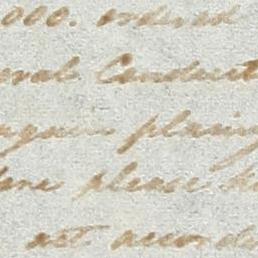 000. ordered
eral Conduct
again plainly
please
act accord